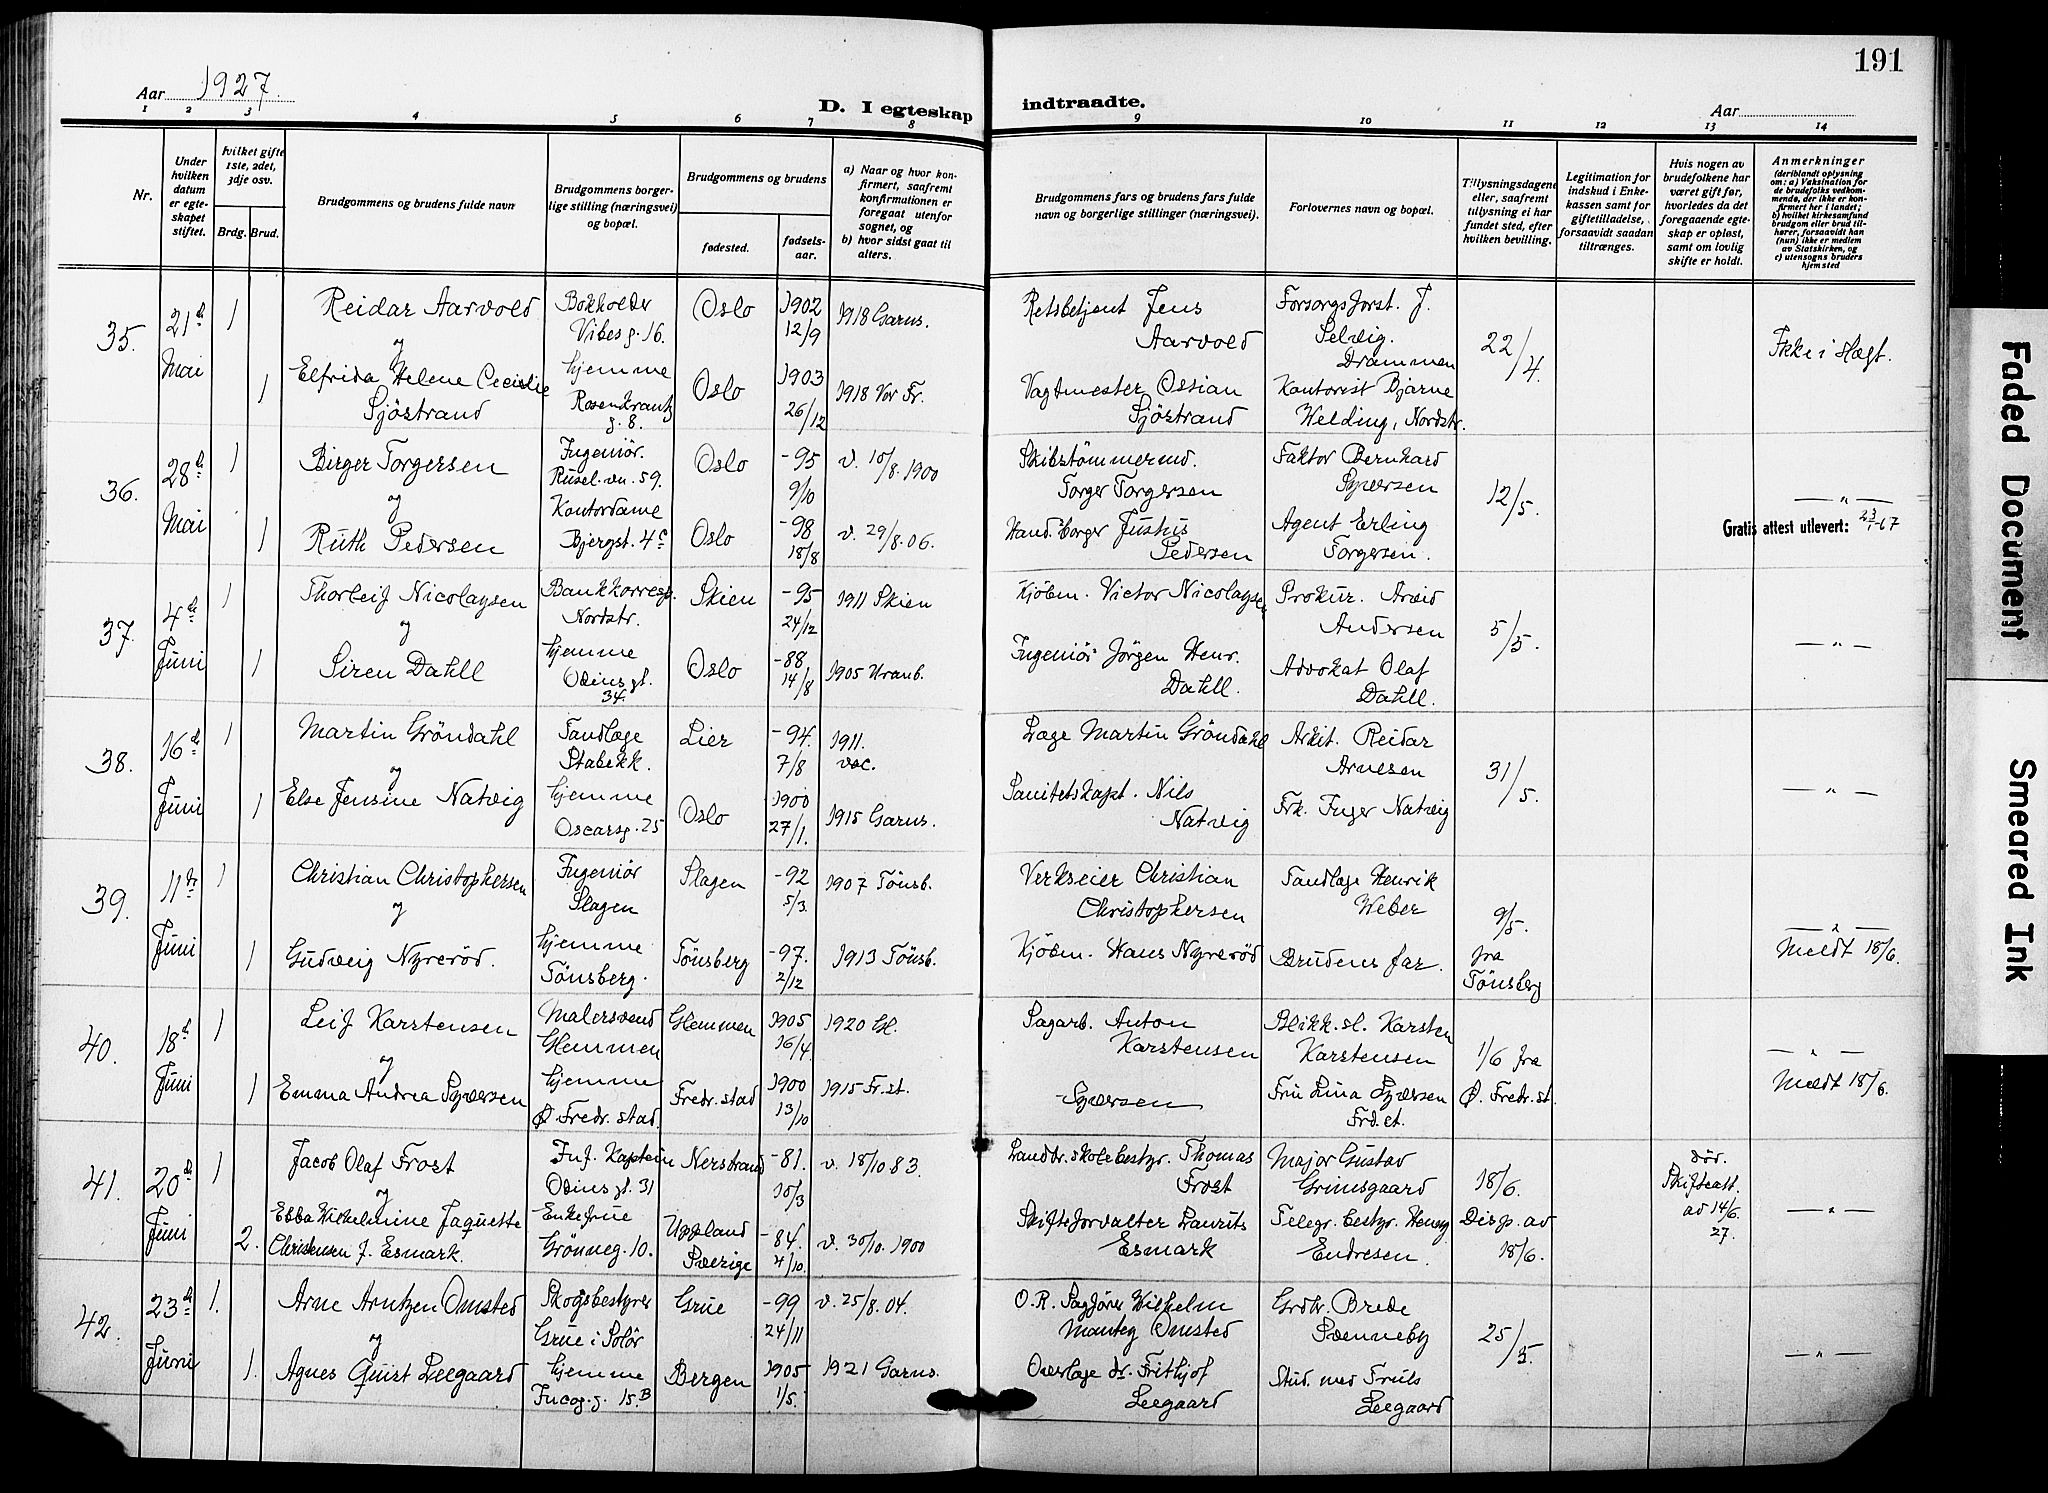 191
Aar 1927.
D. I egteskap indtraadte.
Aar
1 2 3 4 5 6 7 8 9 10 11 12 13 14
Nr.
Under hvilken datum er egteskapet stiftet.
hvilket gifte 1ste, 2det, 3dje osv.
Brdg. Brud.
Brudgommens og brudens fulde navn
Brudgommens borgerlige stilling (næringsvei) og bopæl.
Brudgommens og brudens
fødested.
fødselsaar.
a) Naar og hvor konfirmert, saafremt konfirmationen er foregaat utenfor sognet, og
b) hvor sidst gaat til alters.
Brudgommens fars og brudens fars fulde navn og borgerlige stillinger (næringsvei).
Forlovernes navn og bopæl.
Tillysningsdagene eller, saafremt tillysning ei har fundet sted, efter hvilken bevilling.
Legitimation for indskud i Enkekassen samt for giftetilladelse, forsaavidt saadan tiltrænges.
Hvis nogen av brudefolkene har været gift før, hvorledes da det foregaaende egteskap er opløst, samt om lovlig skifte er holdt.
Anmerkninger
(deriblandt oplysning om: a) Vaksination for de brudefolks vedkommende, der ikke er konfirmert her i landet;
b) hvilket kirkesamfund brudgom eller brud tilhører, forsaavidt han (hun) ikke er medlem av Statskirken, og
c) utensogns bruders hjemsted
35. 21de Mai 1
Reidar Aarvold
Bokholder
Vibes g. 16.
Oslo
1902
12/9
1918 Garns.
Retsbetjent Jens
Aarvold
Forsorgsforst. J.
Selvig.
Drammen
22/4.
Ikke i Slegt.
og
1
Elfrida Helene Cecielie
Sjöstrand
hjemme
Rosenkrantz
g. 8.
Oslo
1903
26/12
1918 Vor Fr.
Vagtmester Ossian
Sjöstrand
Kontorist Bjarne
Welding, Nordstr.
36. 28de Mai 1
Birger Torgersen
Ingeniör.
Rusel.vn. 59.
Oslo
-95
9/10
v. 10/8. 1900
Skibstömmermd.
Torger Torgersen
Faktor Bernhard
Syversen
12/5.
— " —
Gratis attest utlevert: 23/1-67
og
1
Ruth Pedersen
Kontordame
Bjergst. 4c
Oslo
-98
18/8
v. 29/8. 06.
Hand.borger Justus
Pedersen
Agent Erling
Torgersen.
37. 4de Juni 1
Thorleif Nicolaysen
Bankkorresp.
Nordstr.
Skien
-95
24/12
1911 Skien
Kjöbm. Victor Nicolaysen
Prokur. Arvid
Andersen
5/5.
— " —
og
1
Siren Dahll
hjemme
Odins gt.
34.
Oslo
-88
14/8
1905 Uranb.
Ingeniör Jörgen Henr.
Dahll.
Advokat Olaf
Dahll.
38. 16de Juni 1
Martin Gröndahl
Tandlæge
Stabekk.
Lier
-94.
7/8
1911.
vac.
Læge Martin Gröndahl
Arkit. Reidar
Arnesen
31/5.
— " —
og
1
Else Jensine Natvig
hjemme
Oscarsg. 25
Oslo
1900
27/1.
1915 Garns.
Sanitetskapt. Nils
Natvig
Frk. Inger Natvig
39. 11te Juni 1
Christian Christophersen
Ingeniör
Slagen
Slagen
-92
5/3.
1907 Tönsb.
Verkseier Christian
Christophersen
Tandlæge Henrik
Weber
9/5.
fra
Tönsberg
— " —
Meldt 18/6.
og
1
Gudveig Nyreröd.
hjemme
Tönsberg.
Tönsberg
-97.
2/12
1913 Tönsb.
Kjöbm. Hans Nyreröd
Brudens far.
40. 18de Juni 1
Leif Karstensen
Malersvend
Glemmen
Glemmen
1905
16/4.
1920 Gl.
Sagarb. Anton
Karstensen
Blikk.sl. Karsten
Karstensen
1/6 fra
Ø. Fredr.st.
— " —
Meldt 18/6.
og
1
Emma Andrea Syversen
hjemme
Ø Fredr.stad.
Fredr.stad
1900
13/10
1915 Fr.st.
Syversen
Fru Lina Syversen
Frd.st.
41. 20de Juni 1
Jacob Olaf Frost
Inf. Kaptein
Odins gt. 31
Nerstrand
-81.
10/3
v. 18/10 83.
Landbr.skolebestyr. Thomas
Frost
Major Gustav
Grimsgaard
18/6.
Disp. av
18/6.
död.
Skifteatt.
av 14/6.
27.
— " —
og
2.
Ebba Wilhelmine Jaquette
Christensen f. Esmark.
Enkefrue
Grönneg. 10.
Uppland
Sverige
-84.
4/10.
v. 30/10. 1900
Skifteforvalter Laurits
Esmark
Telegr. bestyr. Henry
Endresen.
42. 23de Juni 1.
Arne Arntzen Omsted
Skogbestyrer
Grue i Solör
Grue
-99
24/11
v. 25/8. 04.
O.R. Sagförer Wilhelm
Mantey Omsted
Grdbr. Brede
Svenneby
25/5.
— " —
og
1.
Agnes Quist Leegaard
hjemme
Incog. g. 15.B
Bergen
1905
1/5.
1921 Garns.
Overlæge dr. Frithjof
Leegaard
Stud. med Truls
Leegaard
Faded Document
Smeared Ink